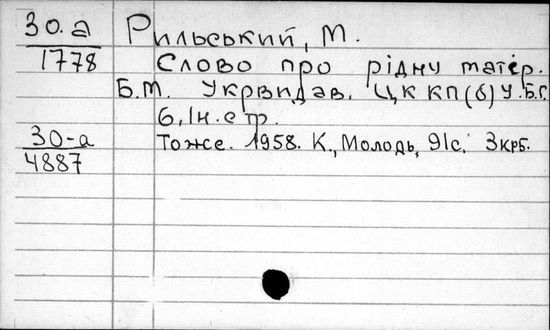 30.а Рильський, М.
1778 Слово про рідну матер.
Б.М. Укрвидав. ЦК КП(б)У. Б.Г.
6, Ін. стр.
30-а Тоже. 1958. К., Молодь, 91с. 3крб.
4887